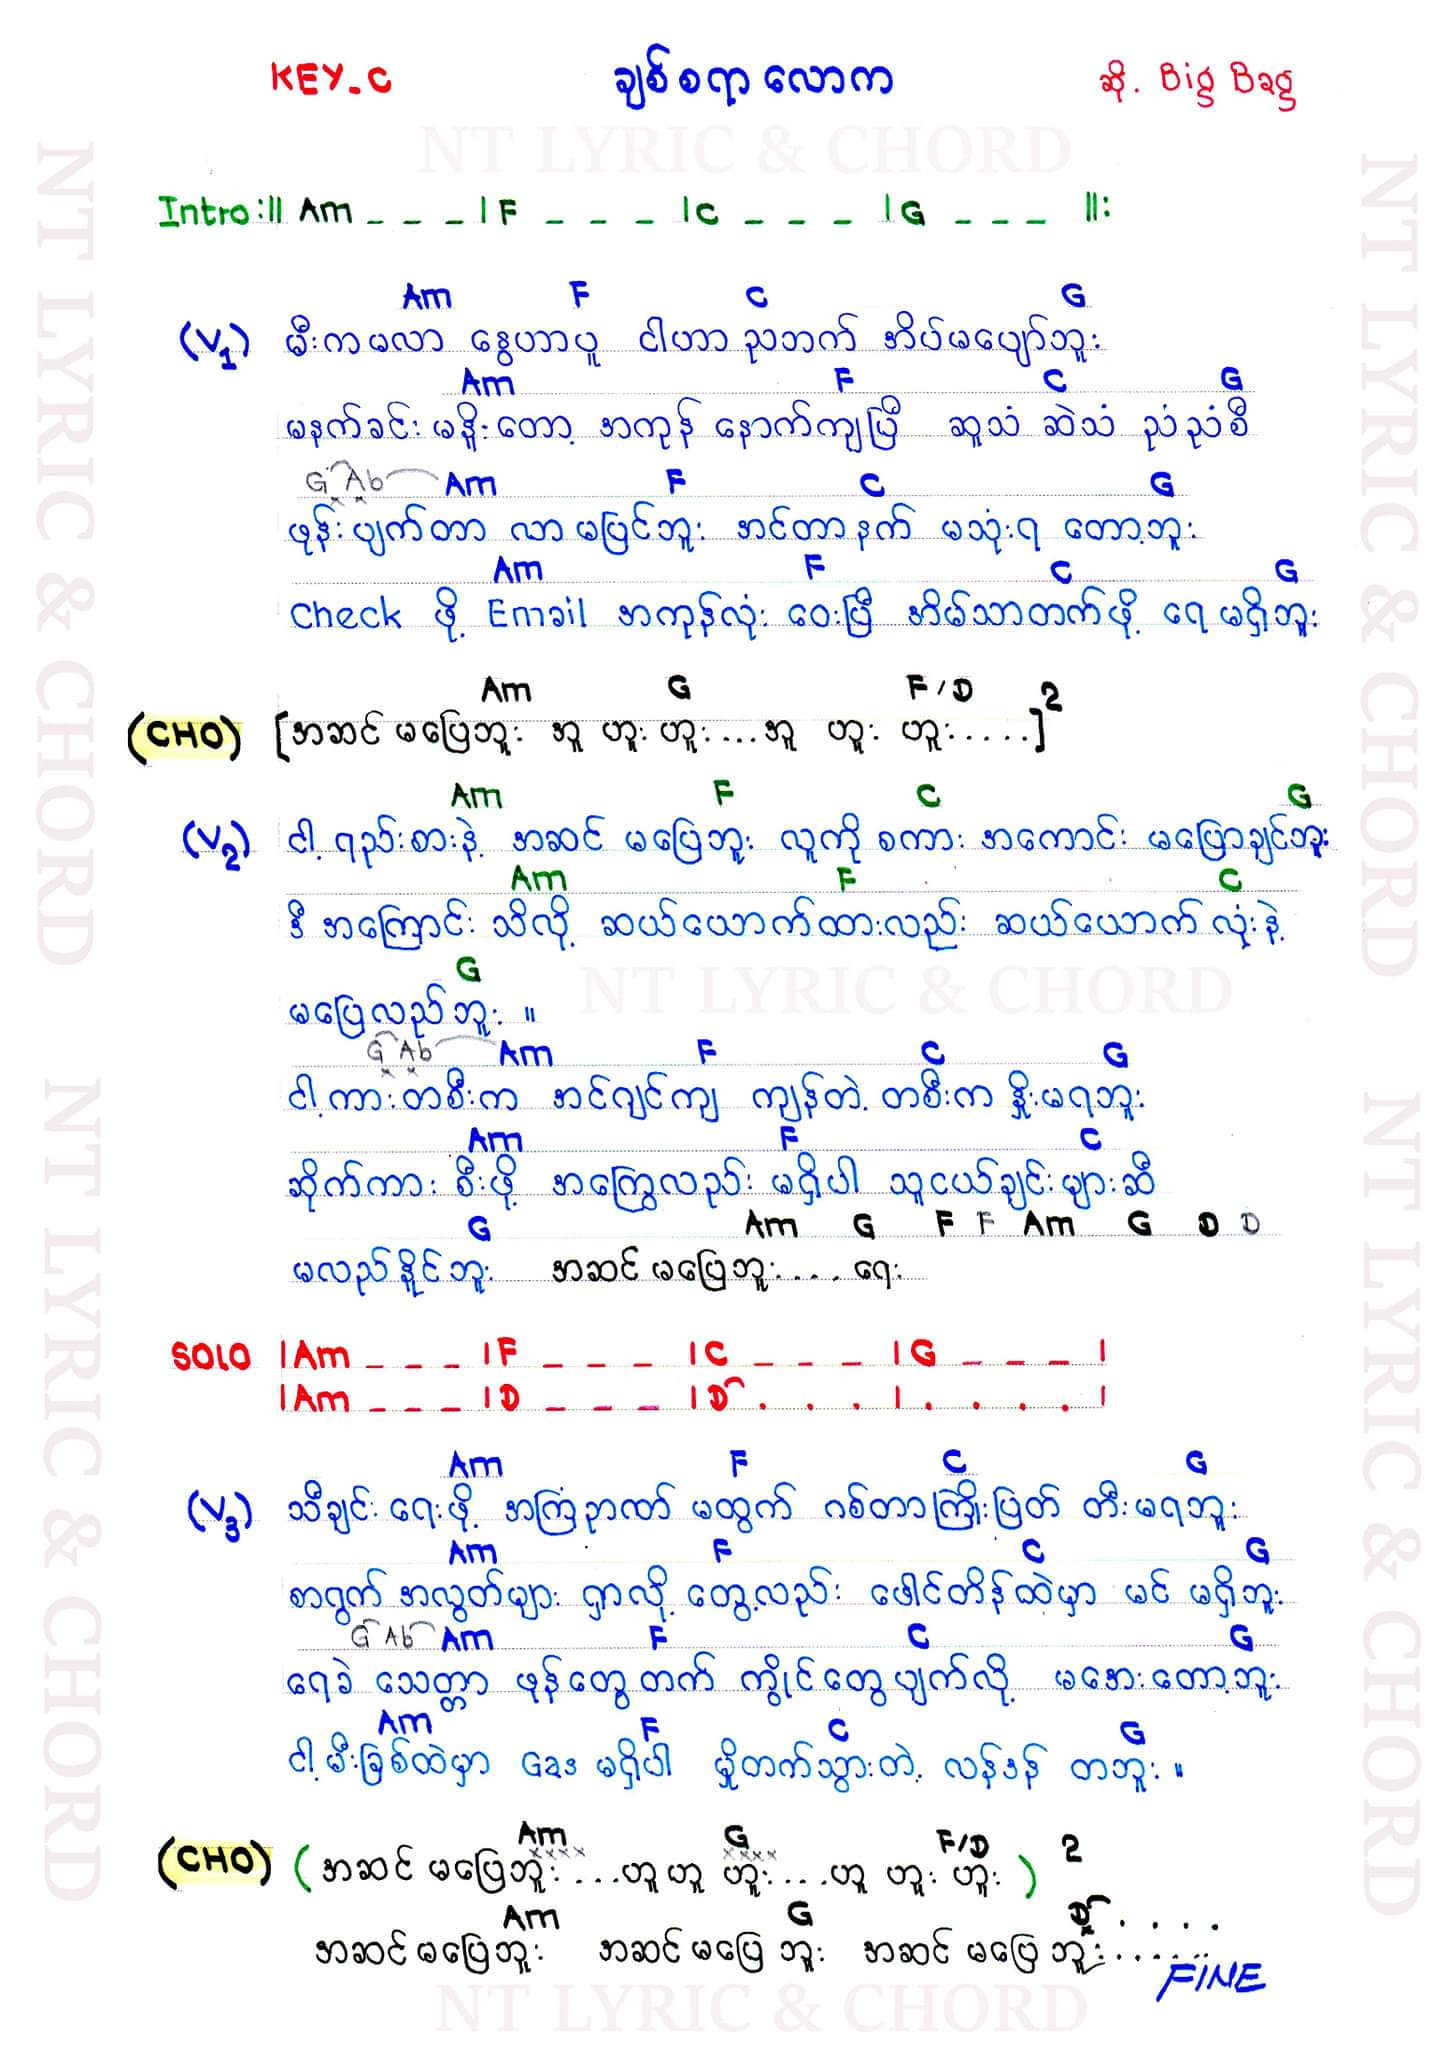 KEY-C ချစ်စရာလောက ဆို. Big Bag
NT LYRIC & CHORD
Intro :|| Am _ _ _ | F _ _ _ | C _ _ _ | G _ _ _ ||:
Am F C G
(V1) မီးကမလာ နွေဟာပူ ငါဟာညဘက် အိပ်မပျော်ဘူး
Am F C G
မနက်ခင်း မနိုးတော့ အကုန် နောက်ကျပြီ ဆူသံ ဆဲသံ ညံညံစီ
G Ab Am F C G
ဖုန်းပျက်တာ လာမပြင်ဘူး အင်တာနက် မသုံးရ တော့ဘူး
Am F C G
Check ဖို့ Email အကုန်လုံး ဝေးပြီ အိမ်သာတက်ဖို့ ရေမရှိဘူး
Am G F/D 2
(CHO) [အဆင်မပြေဘူး အူ ဟူး ဟူး...အူ ဟူး ဟူး.....]
Am F C G
(V2) ငါ့ ရည်းစားနဲ့ အဆင် မပြေဘူး လူကို စကား အကောင်း မပြောချင်ဘူး
Am F C
ဒီ အကြောင်း သိလို့ ဆယ်ယောက်ထားလည်း ဆယ်ယောက် လုံးနဲ့
NT LYRIC & CHORD
G
မပြေလည်ဘူး ။
G Ab Am F C G
ငါ့ကားတစီးက အင်ဂျင်ကျ ကျန်တဲ့ တစီးက နှိုးမရဘူး
Am F C
ဆိုက်ကား စီးဖို့ အကြွေလည်း မရှိပါ သူငယ်ချင်းများဆီ
G Am G F F Am G D D
မလည်နိုင်ဘူး အဆင်မပြေဘူး.... ရေး
SOLO | Am _ _ _ | F _ _ _ | C _ _ _ | G _ _ _ |
| Am _ _ _ | D _ _ _ | D . . . | . . . . |
Am F C G
(V3) သီချင်းရေးဖို့ အကြံဉာဏ် မထွက် ဂစ်တာကြိုးပြတ် တီးမရဘူး
Am F C G
စာရွက် အလွတ်များ ရှာလို့ တွေ့လည်း ဖေါင်တိန်ထဲမှာ မင် မရှိဘူး
G Ab Am F C G
ရေခဲ သေတ္တာ ဖုန်တွေတက် ကွိုင်တွေပျက်လို့ မအေးတော့ဘူး
Am F C G
ငါ့မီးခြစ်ထဲမှာ Gas မရှိပါ မှိုတက်သွားတဲ့ လန်ဒန် တဘူး ။
Am G F/D 2
(CHO) (အဆင်မပြေဘူး...ဟူဟူ ဟူး...ဟူ ဟူး ဟူး)
Am G D . . . .
အဆင်မပြေဘူး အဆင်မပြေ ဘူး အဆင်မပြေ ဘူး......
FINE
NT LYRIC & CHORD
NT LYRIC & CHORD
NT LYRIC & CHORD
NT LYRIC & CHORD
NT LYRIC & CHORD